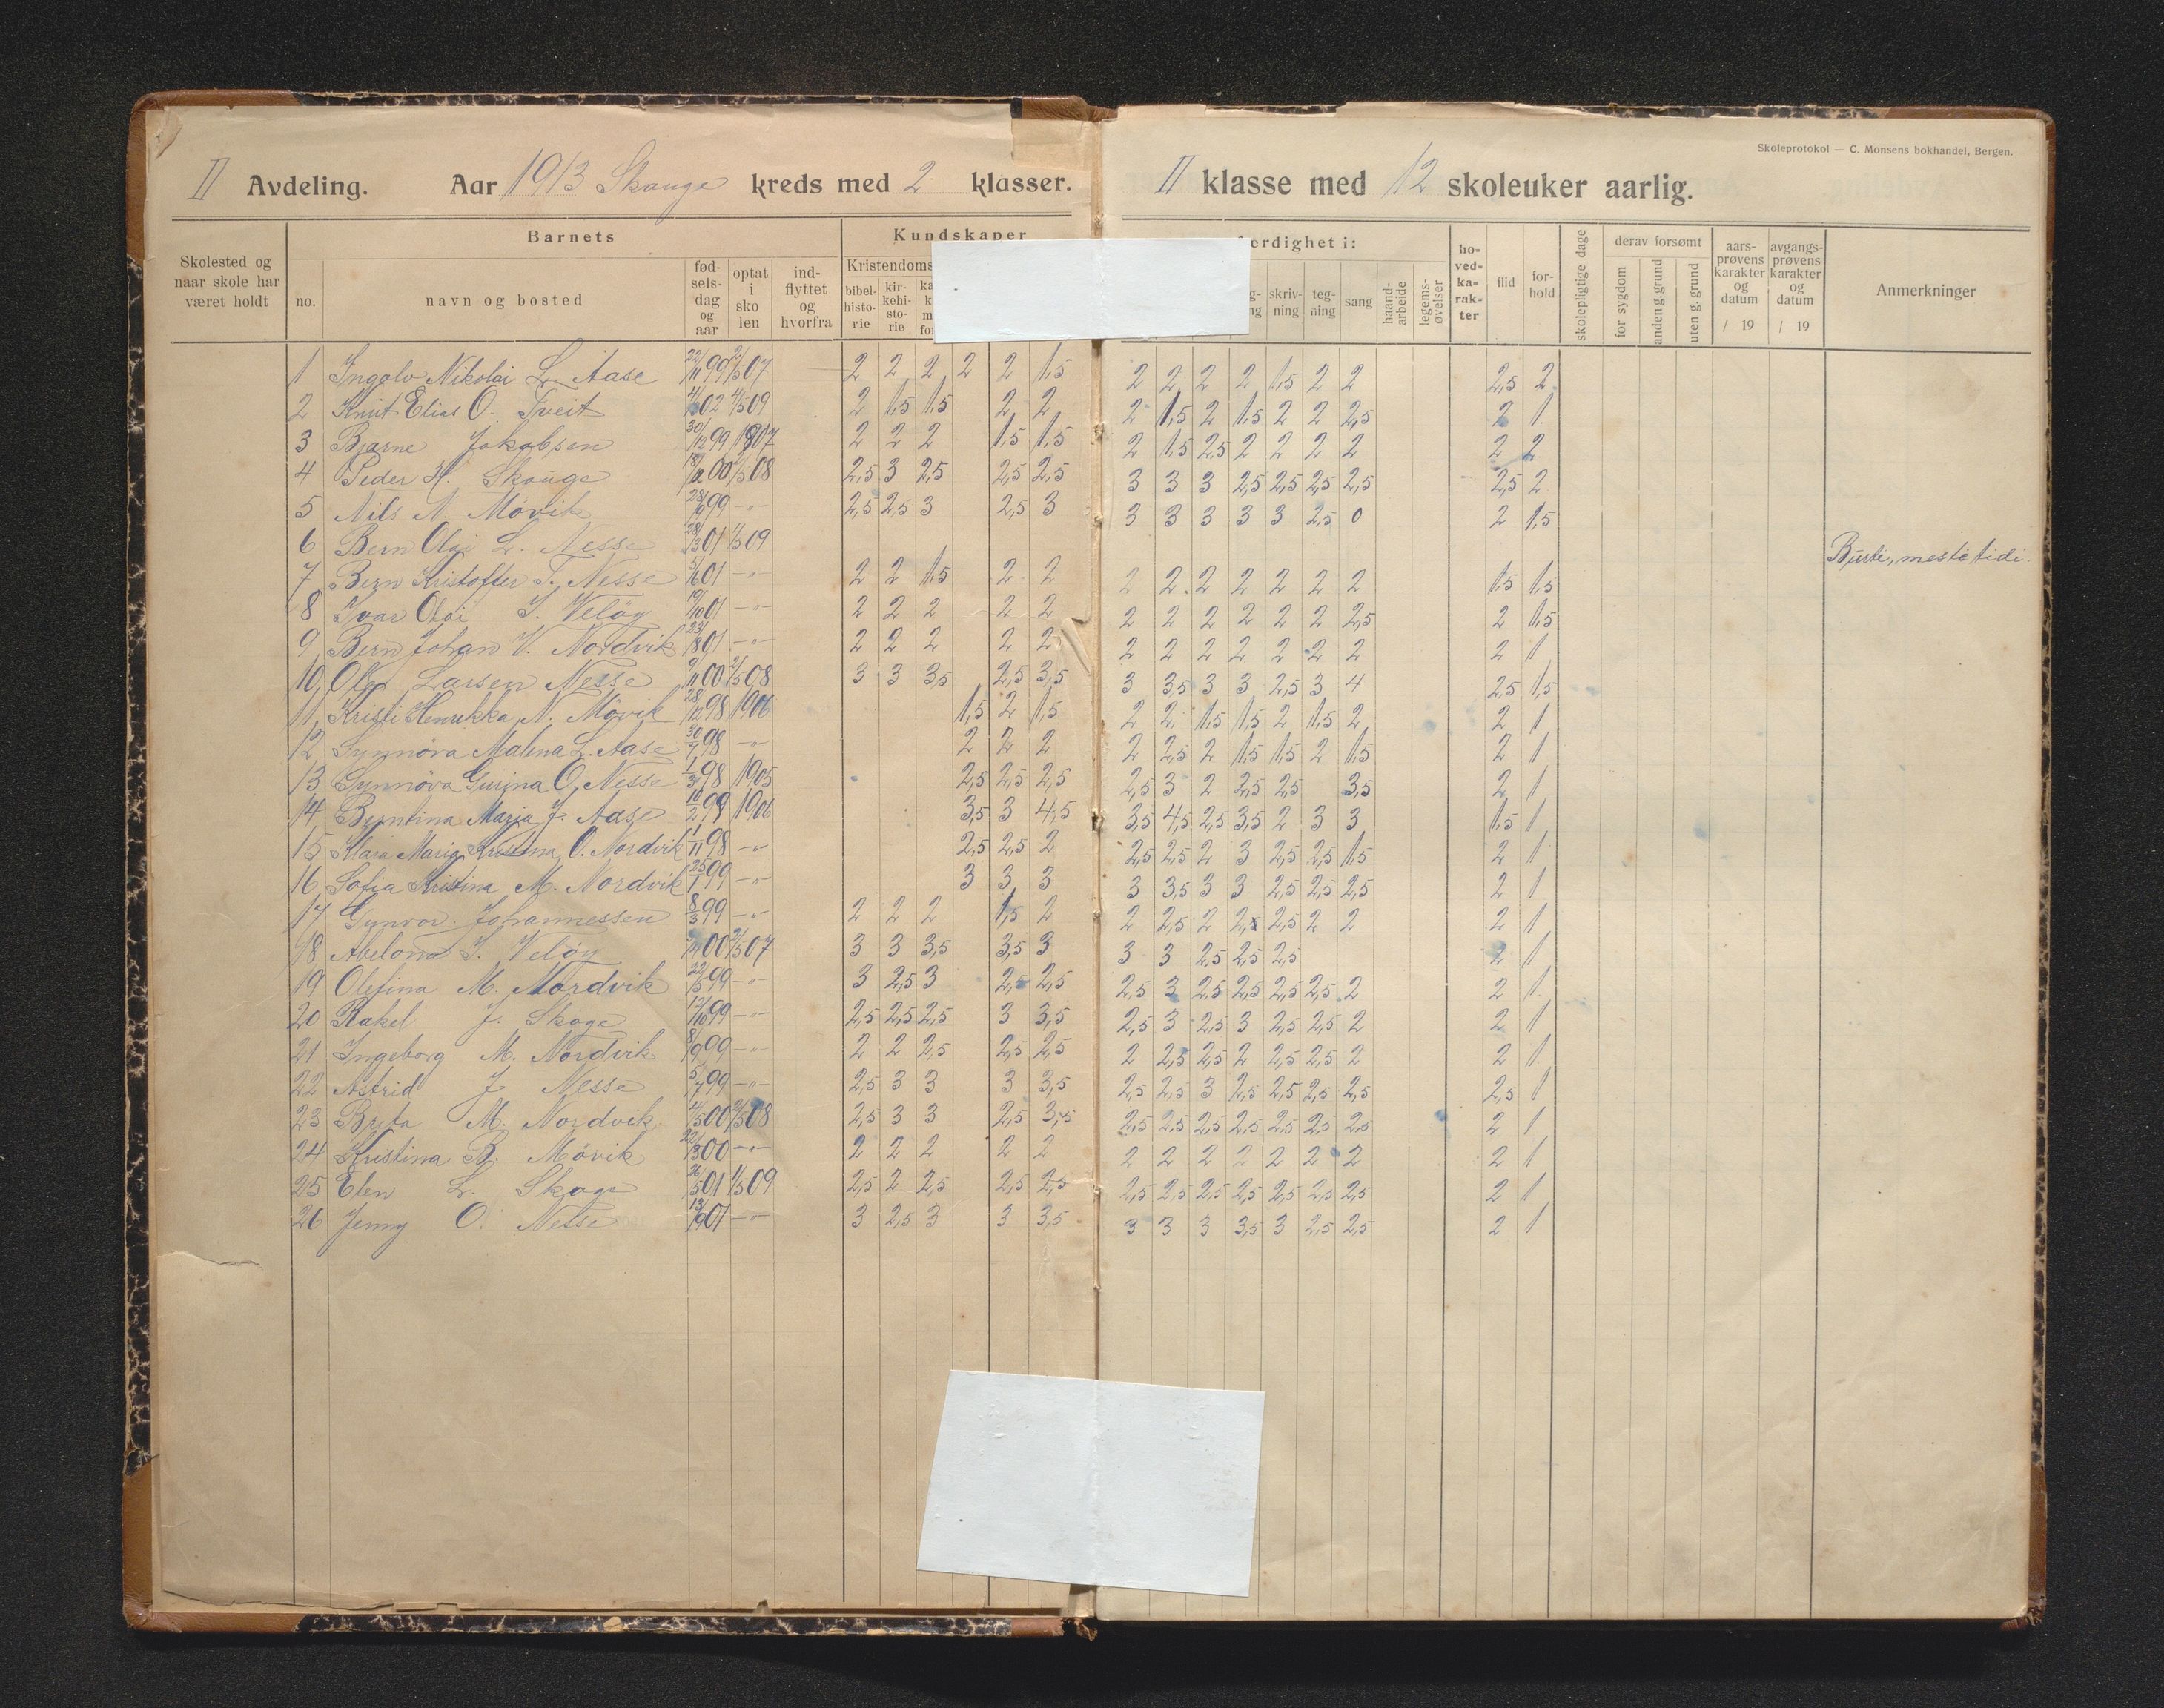 Skoleprotokol — C. Monsens bokhandel, Bergen.
II Avdeling. Aar 1913 Skauge kreds med 2 klasser. II klasse med 12 skoleuker aarlig.
Skolested og naar skole har været holdt
Barnets
no. navn og bosted fødselsdag og aar optat i skolen indflyttet og hvorfra
Kundskaper
Kristendoms
bibelhistorie kirkehistorie
erdighet i:
skrivning tegning sang haandarbeide legemsøvelser
hovedkarakter flid forhold skolepligtige dage
derav forsømt
for sygdom anden g. grund uten g. grund
aarsprøvens karakter og datum / 19
avgangsprøvens karakter og datum / 19
Anmerkninger
1 Ingolv Nikolai L. Aase 22/11 99 2/5 07 2 2 2 2 2 1,5 2 2 2 2 1,5 2 2 2,5 2
2 Knut Elias O. Tveit 02 4/5 09 2 1,5 1,5 2 2 2 1,5 2 1,5 2 2 2,5 2 1
3 Bjarne Jakobsen 30/12 99 1907 2 2 2 1,5 1,5 2 1,5 2,5 2 2 2 2 2 2
4 Peder H. Skauge 00 /5 08 2,5 3 2,5 2,5 2,5 3 3 3 2,5 2,5 2,5 2,5 2,5 2
5 Nils N. Mövik 99 -"- 2,5 2,5 3 2,5 3 3 3 3 3 3 2,5 0 2 1,5
6 Bern Olai L. Nesse 28/3 01 1/5 09
7 Bern Kristoffer T. Nesse 5/6 01 -"- 2 2 1,5 2 2 2 2 2 2 2 2 2 1,5 1,5
8 Ivar Olai I. Velöy 19/10 01 -"- 2 2 2 2 2 2 2 2 2 2 2 2,5 2 1,5
9 Bern Johan V. Nordvik 23/8 01 -"- 2 2 2 2 2 2 2 2 2 2 2 2 2 1
10 Larsen Nesse 9/11 00 2/5 08 3 3 3,5 2,5 3,5 3 3,5 3 3 2,5 3 4 2,5 1,5
11 Kristi Henrikka N. Mövik 28/12 98 1906 1,5 2 1,5 2 2 1,5 1,5 2 1,5 2 2 1
12 Synnöva Malena L. Aase 30/7 98 -"- 2 2 2 2 2,5 2 1,5 1,5 2 1,5 2 1
13 Synnöva Gurina O. Nesse 1/3 98 1905 2,5 2,5 2,5 2,5 3 2 2,5 2,5 3,5 2 1
14 Maria J. Aase 10/2 1906 3,5 3 4,5 3,5 4,5 2,5 3,5 2 3 3 1,5 1
15 Klara Maria Kristina O. Nordvik 1/11 98 -"- 2,5 2,5 2 2,5 2,5 2 3 2,5 2,5 1,5 2 1
16 Sofia Kristina M. Nordvik 25/1 99 -"- 3 3 3 3 3,5 3 3 2,5 2,5 2,5 2 1
17 Gunvor Johannessen 8/3 99 -"- 2 2 2 1,5 2 2 2,5 2 2,5 2 2 2 1
18 Abelona I. Velöy 00 2/5 07 3 3 3,5 3,5 3 3 3 2,5 2,5 2,5 2 1
19 Olefina M. Nordvik 22/5 99 -"- 3 2,5 3 2,5 2,5 2,5 3 2,5 2,5 2,5 2,5 2 2 1
20 Rakel J. Skage 12/10 99 -"- 2,5 2,5 2,5 3 3,5 2,5 3 2,5 3 2,5 2,5 2 2 1
21 Ingeborg M. Nordvik 8/9 99 -"- 2 2 2,5 2,5 2,5 2 2,5 2,5 2 2,5 2,5 2 2 1
22 Astrid J Nesse 5/7 99 -"- 2,5 3 3 3 3,5 2,5 2,5 3 2,5 2,5 2,5 2,5 2,5 1
23 Brita M. Nordvik 4/5 00 2/5 08 2,5 3 3 2,5 3,5 2,5 2,5 2,5 2,5 2,5 2,5 2,5 2 1
24 Kristina B. Mövik 22/3 00 -"- 2 2 2 2 2 2 2 2 2 2 2 2 2 1
25 Elen L. Skage 26/5 01 1/5 09 2,5 2 2,5 2,5 2,5 2,5 2,5 2,5 2,5 2,5 2,5 2,5 2 1
26 Jenny O. Nesse 13/9 01 -"- 3 2,5 3 3 3,5 3 3 3 3,5 3 2,5 2,5 2 1